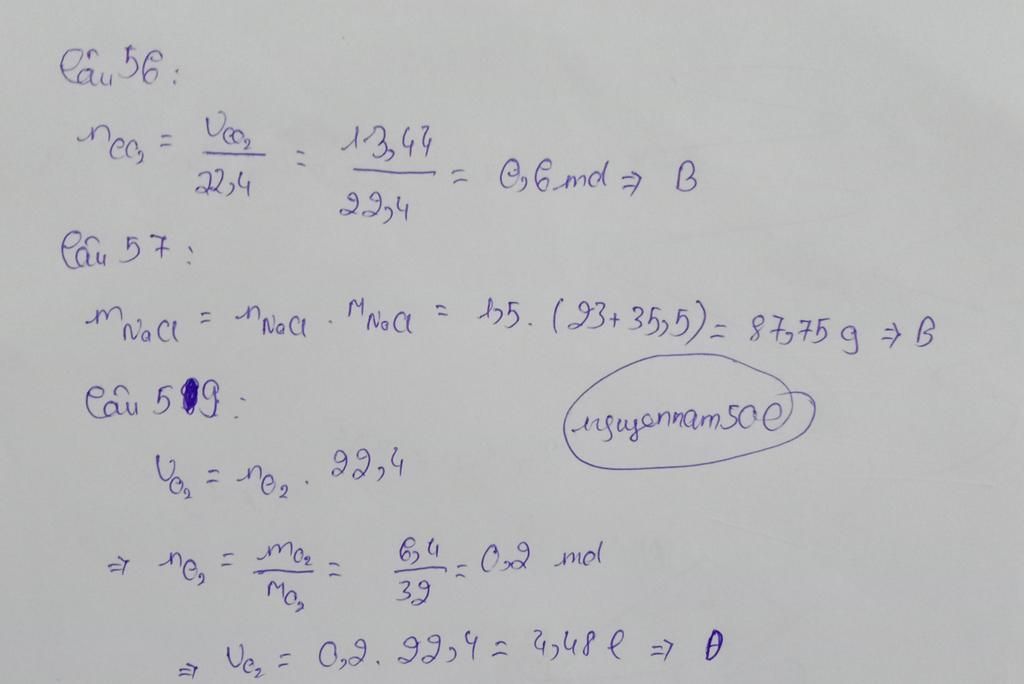 Câu 56:
nCO₂ = VCO₂/22,4 = 13,44/22,4 = 0,6 mol => B
Câu 57:
mNaCl = nNaCl . MNaCl = 1,5 . (23+35,5) = 87,75 g => B
Câu 59:
nguyennam50e
VO₂ = nO₂ . 22,4
=> nO₂ = mO₂/MO₂ = 6,4/32 = 0,2 mol
=> VO₂ = 0,2 . 22,4 = 4,48 l =>